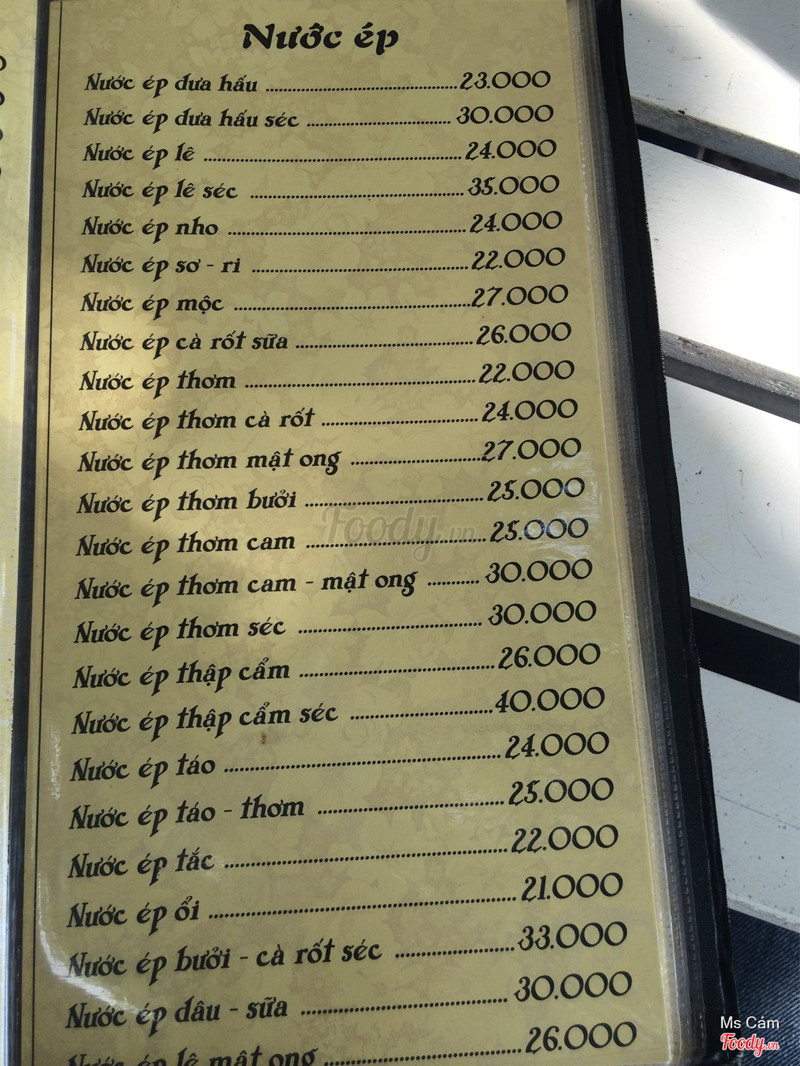 Nước ép
Nước ép dưa hấu ........ 23.000
Nước ép dưa hấu séc ........ 30.000
Nước ép lê ........ 24.000
Nước ép lê séc ........ 35.000
Nước ép nho ........ 24.000
Nước ép sơ - ri ........ 22.000
Nước ép mộc ........ 27.000
Nước ép cà rốt sữa ........ 26.000
Nước ép thơm ........ 22.000
Nước ép thơm cà rốt ........ 24.000
Nước ép thơm mật ong ........ 27.000
Nước ép thơm bưởi ........ 25.000
Nước ép thơm cam ........ 25.000
Nước ép thơm cam - mật ong ........ 30.000
Nước ép thơm séc ........ 30.000
Nước ép thập cẩm ........ 26.000
Nước ép thập cẩm séc ........ 40.000
Nước ép táo ........ 24.000
Nước ép táo - thơm ........ 25.000
Nước ép tắc ........ 22.000
Nước ép ổi ........ 21.000
Nước ép bưởi - cà rốt séc ........ 33.000
Nước ép dâu - sữa ........ 30.000
Nước ép lê mật ong ........ 26.000
Foody.vn
Ms Cám
Foody.vn